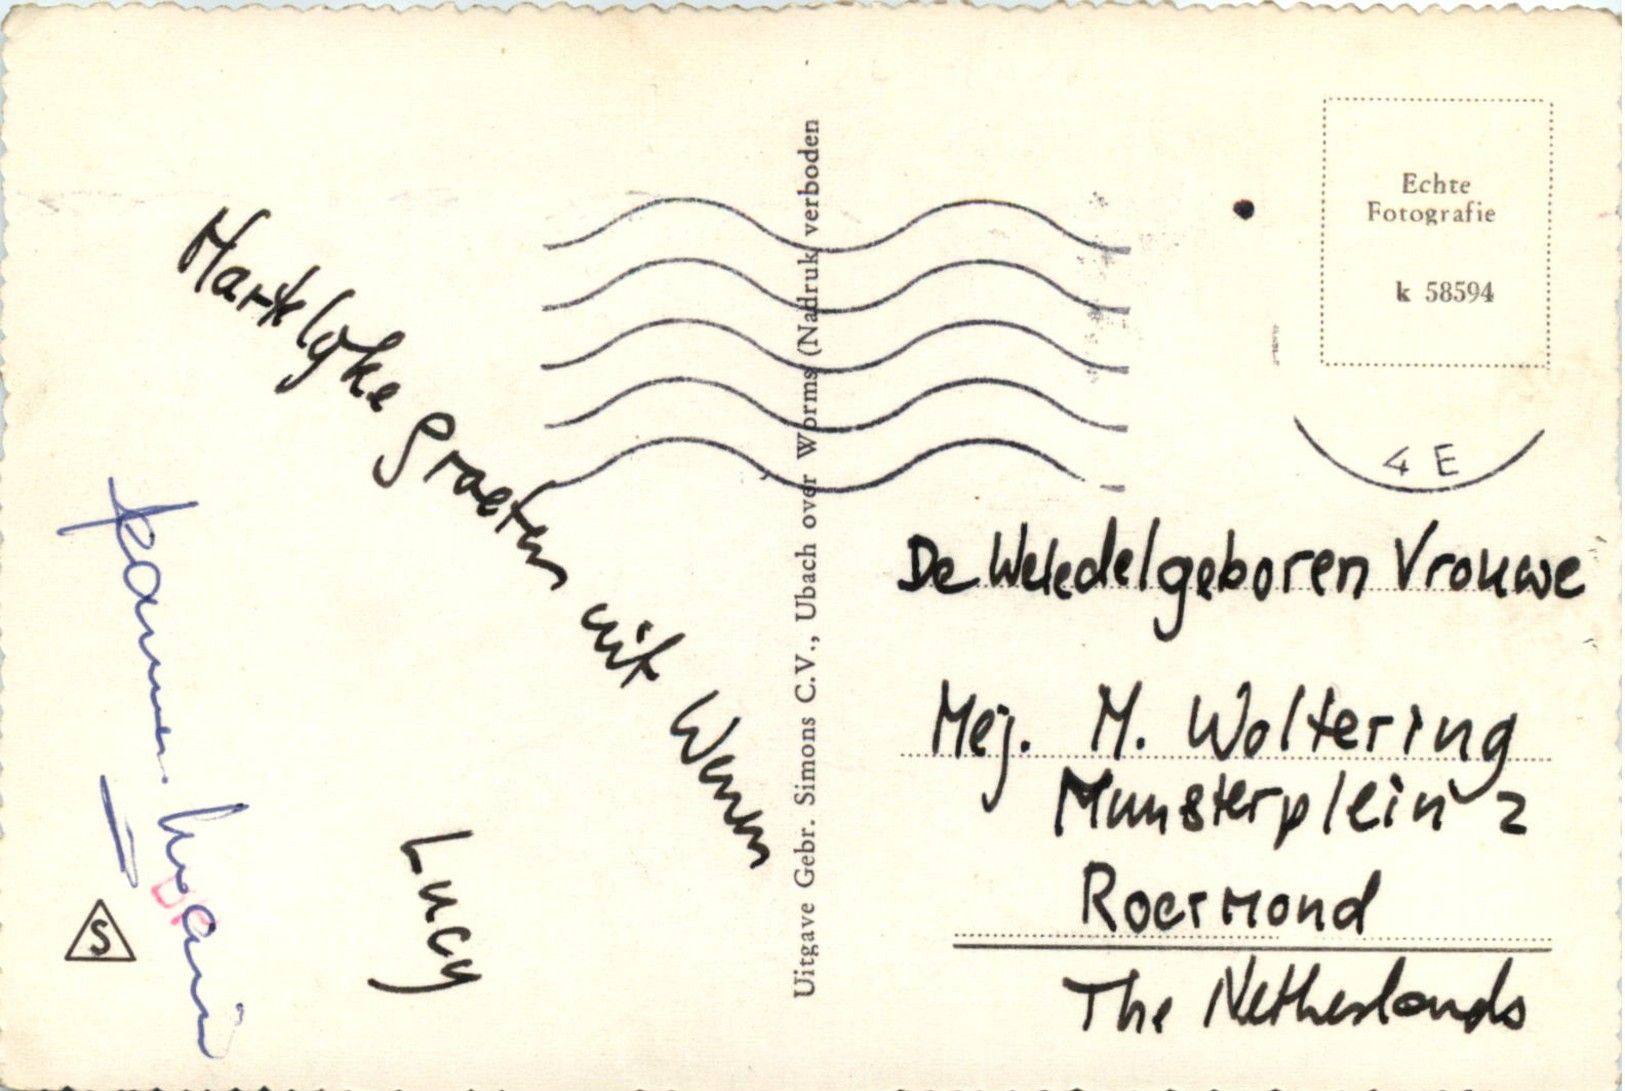 Hartelyke groeten uit Wenen
Lucy
Uitgave Gebr. Simons C.V., Ubach over Worms (Nadruk verboden
Echte
Fotografie
k 58594
4 E
De Weledelgeboren Vrouwe
Mej. M. Woltering
Munsterplein 2
Roermond
The Netherlands
S